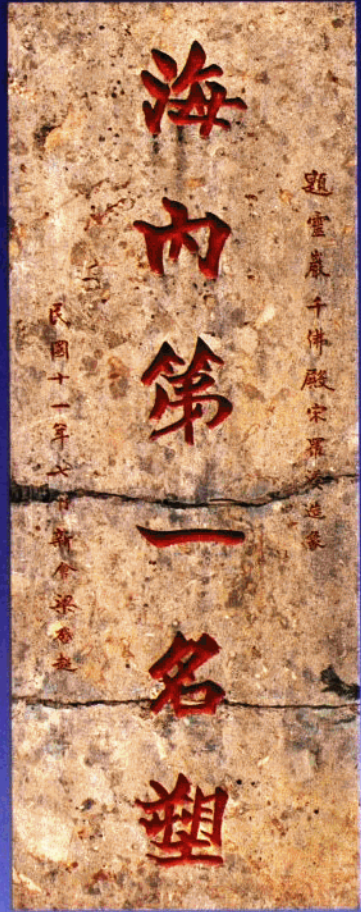 題靈巖千佛殿宋羅漢造象
海內第一名塑
民國十一年七月新會梁啓超